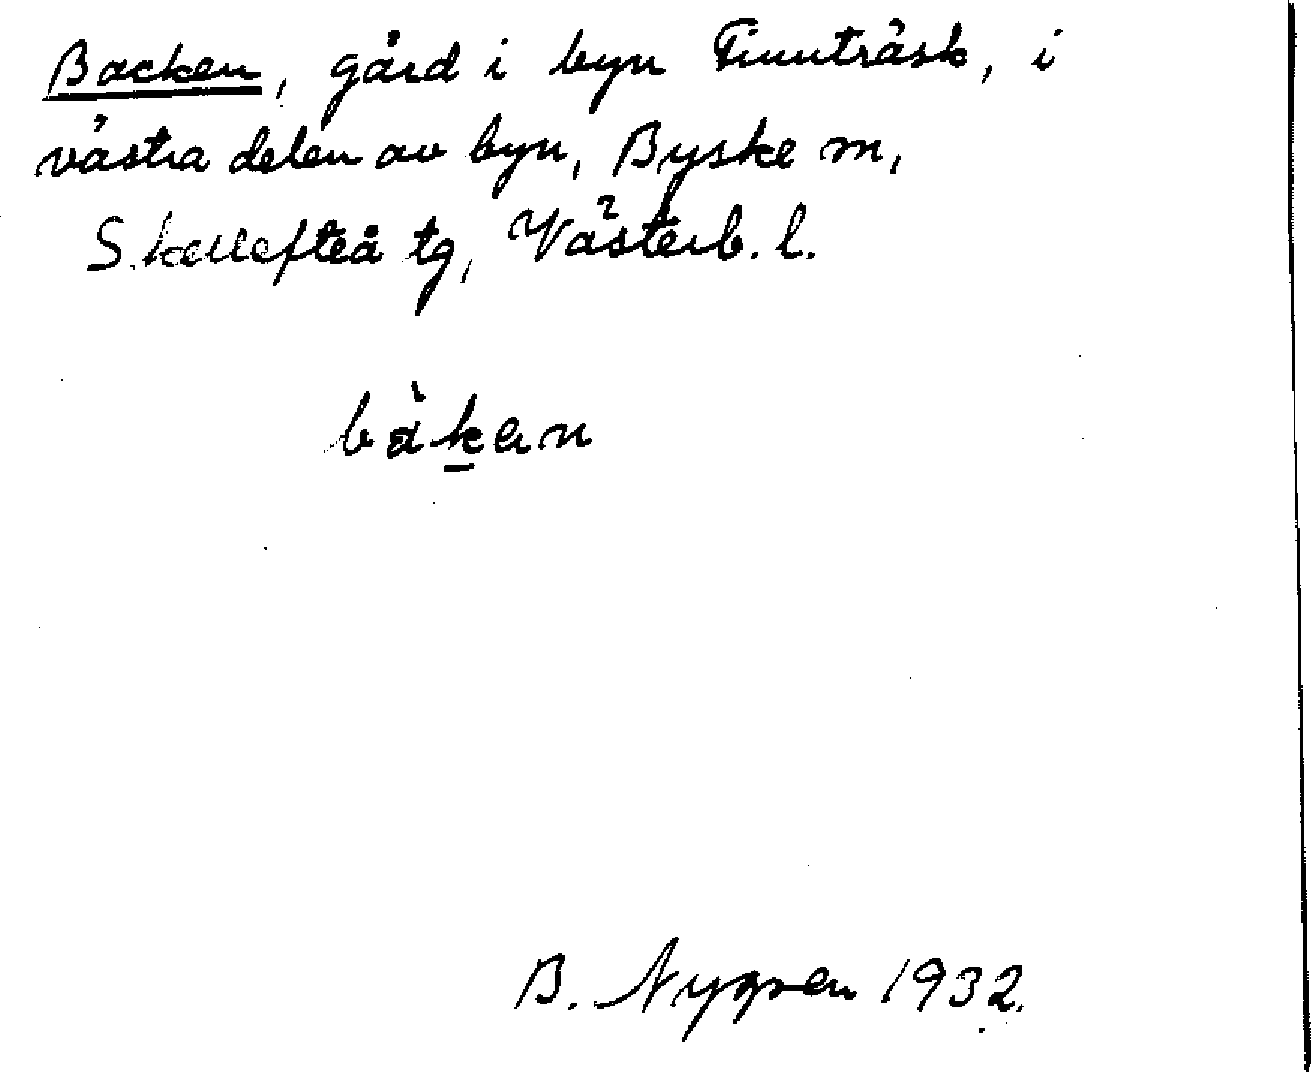 Backen, gård i byn Finnträsk, i
västra delen av byn, Byske sn,
Skellefteå tg, Västerb. l.
bàk̲en
B. Nygren 1932.